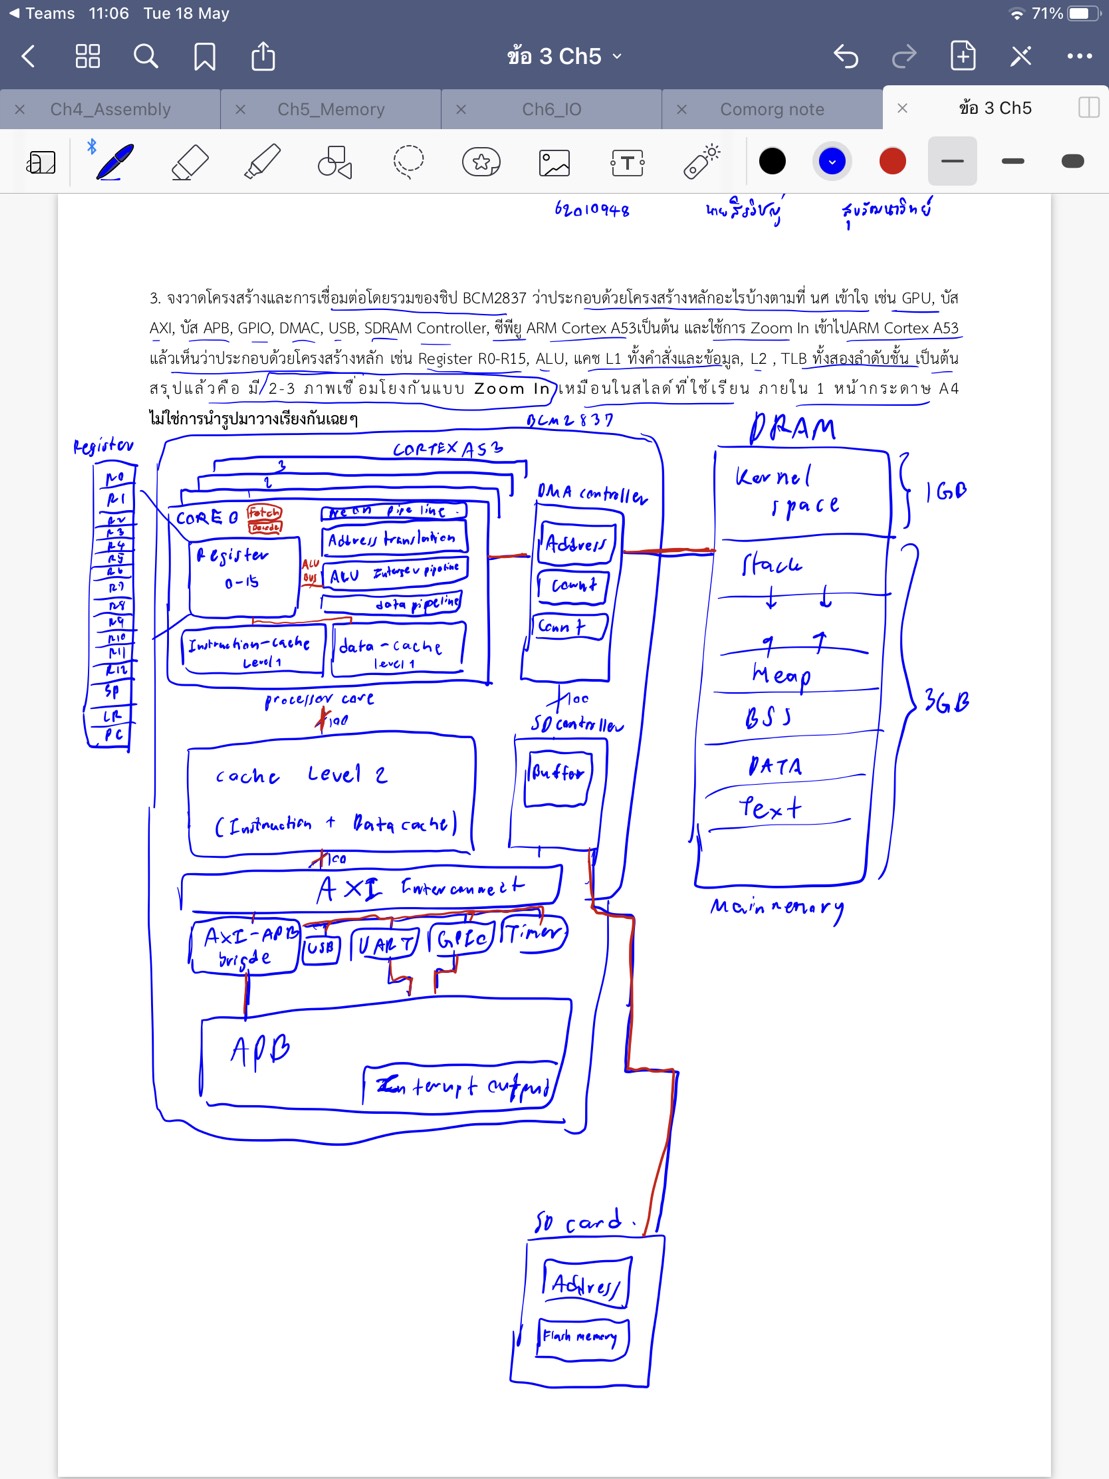 Teams 11:06 Tue 18 May 71%
ข้อ 3 Ch5
Ch4_Assembly Ch5_Memory Ch6_IO Comorg note ข้อ 3 Ch5
62010948
3. จงวาดโครงสร้างและการเชื่อมต่อโดยรวมของชิป BCM2837 ว่าประกอบด้วยโครงสร้างหลักอะไรบ้างตามที่ นศ เข้าใจ เช่น GPU, บัส
AXI, บัส APB, GPIO, DMAC, USB, SDRAM Controller, ซีพียู ARM Cortex A53เป็นต้น และใช้การ Zoom In เข้าไปARM Cortex A53
แล้วเห็นว่าประกอบด้วยโครงสร้างหลัก เช่น Register R0-R15, ALU, แคช L1 ทั้งคำสั่งและข้อมูล, L2 , TLB ทั้งสองลำดับชั้น เป็นต้น
สรุปแล้วคือ มี 2-3 ภาพเชื่อมโยงกันแบบ Zoom In เหมือนในสไลด์ที่ใช้เรียน ภายใน 1 หน้ากระดาษ A4
ไม่ใช่การนำรูปมาวางเรียงกันเฉยๆ
BCM2837
Register
R0
R1
R2
R3
R4
R5
R6
R7
R8
R9
R10
R11
R12
SP
LR
PC
CORTEX A53
3
2
CORE 0
Fetch
Decode
Register
0-15
ALU
BUS
Neon pipeline
Address translation
ALU Integer pipeline
data pipeline
Instruction-cache
Level 1
data-cache
level 1
processor core
100
Cache Level 2
(Instruction + Data cache)
100
AXI Interconnect
AXI-APB
brigde
USB
UART
GPIO
Timer
APB
Interrupt output
DMA controller
Address
Count
Count
100
SD controller
Buffer
DRAM
Kernel
space
1GB
Stack
Heap
BSS
DATA
Text
3GB
Main memory
SD card.
Address
Flash memory